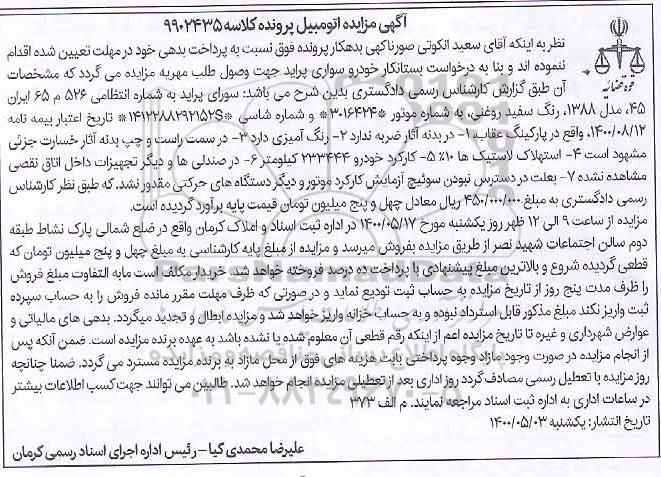 آگهی مزایده اتومبیل پرونده کلاسه ۹۹۰۲۴۳۵
قوه قضائیه
نظر به اینکه آقای سعید انکوتی صورناکهی بدهکار پرونده فوق نسبت به پرداخت بدهی خود در مهلت تعیین شده اقدام
ننموده اند و بنا به درخواست بستانکار خودرو سواری پراید جهت وصول طلب مهریه مزایده می گردد که مشخصات
آن طبق گزارش کارشناس رسمی دادگستری بدین شرح می باشد: سورای پراید به شماره انتظامی ۵۲۶ م ۶۵ ایران
۴۵، مدل ۱۳۸۸، رنگ سفید روغنی، به شماره موتور *۳۰۱۶۴۲۴* و شماره شاسی *۱۴۱۲۲۸۸۲۹۲۱۵۲S* تاریخ اعتبار بیمه نامه
۱۴۰۰/۰۸/۱۲، واقع در پارکینگ عقاب ۱- در بدنه آثار ضربه ندارد ۲- رنگ آمیزی دارد ۳- در سمت راست و چپ بدنه آثار خسارت جزئی
مشهود است ۴- استهلاک لاستیک ها ۱۰٪ ۵- کارکرد خودرو ۲۳۳۴۴۴ کیلومتر ۶- در صندلی ها و دیگر تجهیزات داخل اتاق نقصی
مشاهده نشده ۷- بعلت در دسترس نبودن سوئیچ آزمایش کارکرد موتور و دیگر دستگاه های حرکتی مقدور نشد. که طبق نظر کارشناس
رسمی دادگستری به مبلغ ۴۵۰/۰۰۰/۰۰۰ ریال معادل چهل و پنج میلیون تومان قیمت پایه برآورد گردیده است.
مزایده از ساعت ۹ الی ۱۲ ظهر روز یکشنبه مورخ ۱۴۰۰/۰۵/۱۷ در اداره ثبت اسناد و املاک کرمان واقع در ضلع شمالی پارک نشاط طبقه
دوم سالن اجتماعات شهید نصر از طریق مزایده بفروش میرسد و مزایده از مبلغ پایه کارشناسی به مبلغ چهل و پنج میلیون تومان که
قطعی گردیده شروع و بالاترین مبلغ پیشنهادی با پرداخت ده درصد فروخته خواهد شد. خریدار مکلف است مابه التفاوت مبلغ فروش
را ظرف مدت پنج روز از تاریخ مزایده به حساب ثبت تودیع نماید و در صورتی که ظرف مهلت مقرر مانده فروش را به حساب سپرده
ثبت واریز نکند مبلغ مذکور قابل استرداد نبوده و به حساب خزانه واریز خواهد شد و مزایده ابطال و تجدید میگردد. بدهی های مالیاتی و
عوارض شهرداری و غیره تا تاریخ مزایده اعم از اینکه رقم قطعی آن معلوم شده یا نشده باشد به عهده برنده مزایده است. ضمن آنکه پس
از انجام مزایده در صورت وجود مازاد وجوه پرداختی بابت هزینه های فوق از محل مازاد به برنده مزایده مسترد می گردد. ضمنا چنانچه
روز مزایده با تعطیل رسمی مصادف گردد روز اداری بعد از تعطیلی مزایده انجام خواهد شد. طالبین می توانند جهت کسب اطلاعات بیشتر
در ساعات اداری به اداره ثبت اسناد مراجعه نمایند. م الف ۳۷۳
تاریخ انتشار: یکشنبه ۱۴۰۰/۰۵/۰۳
علیرضا محمدی گیا - رئیس اداره اجرای اسناد رسمی کرمان